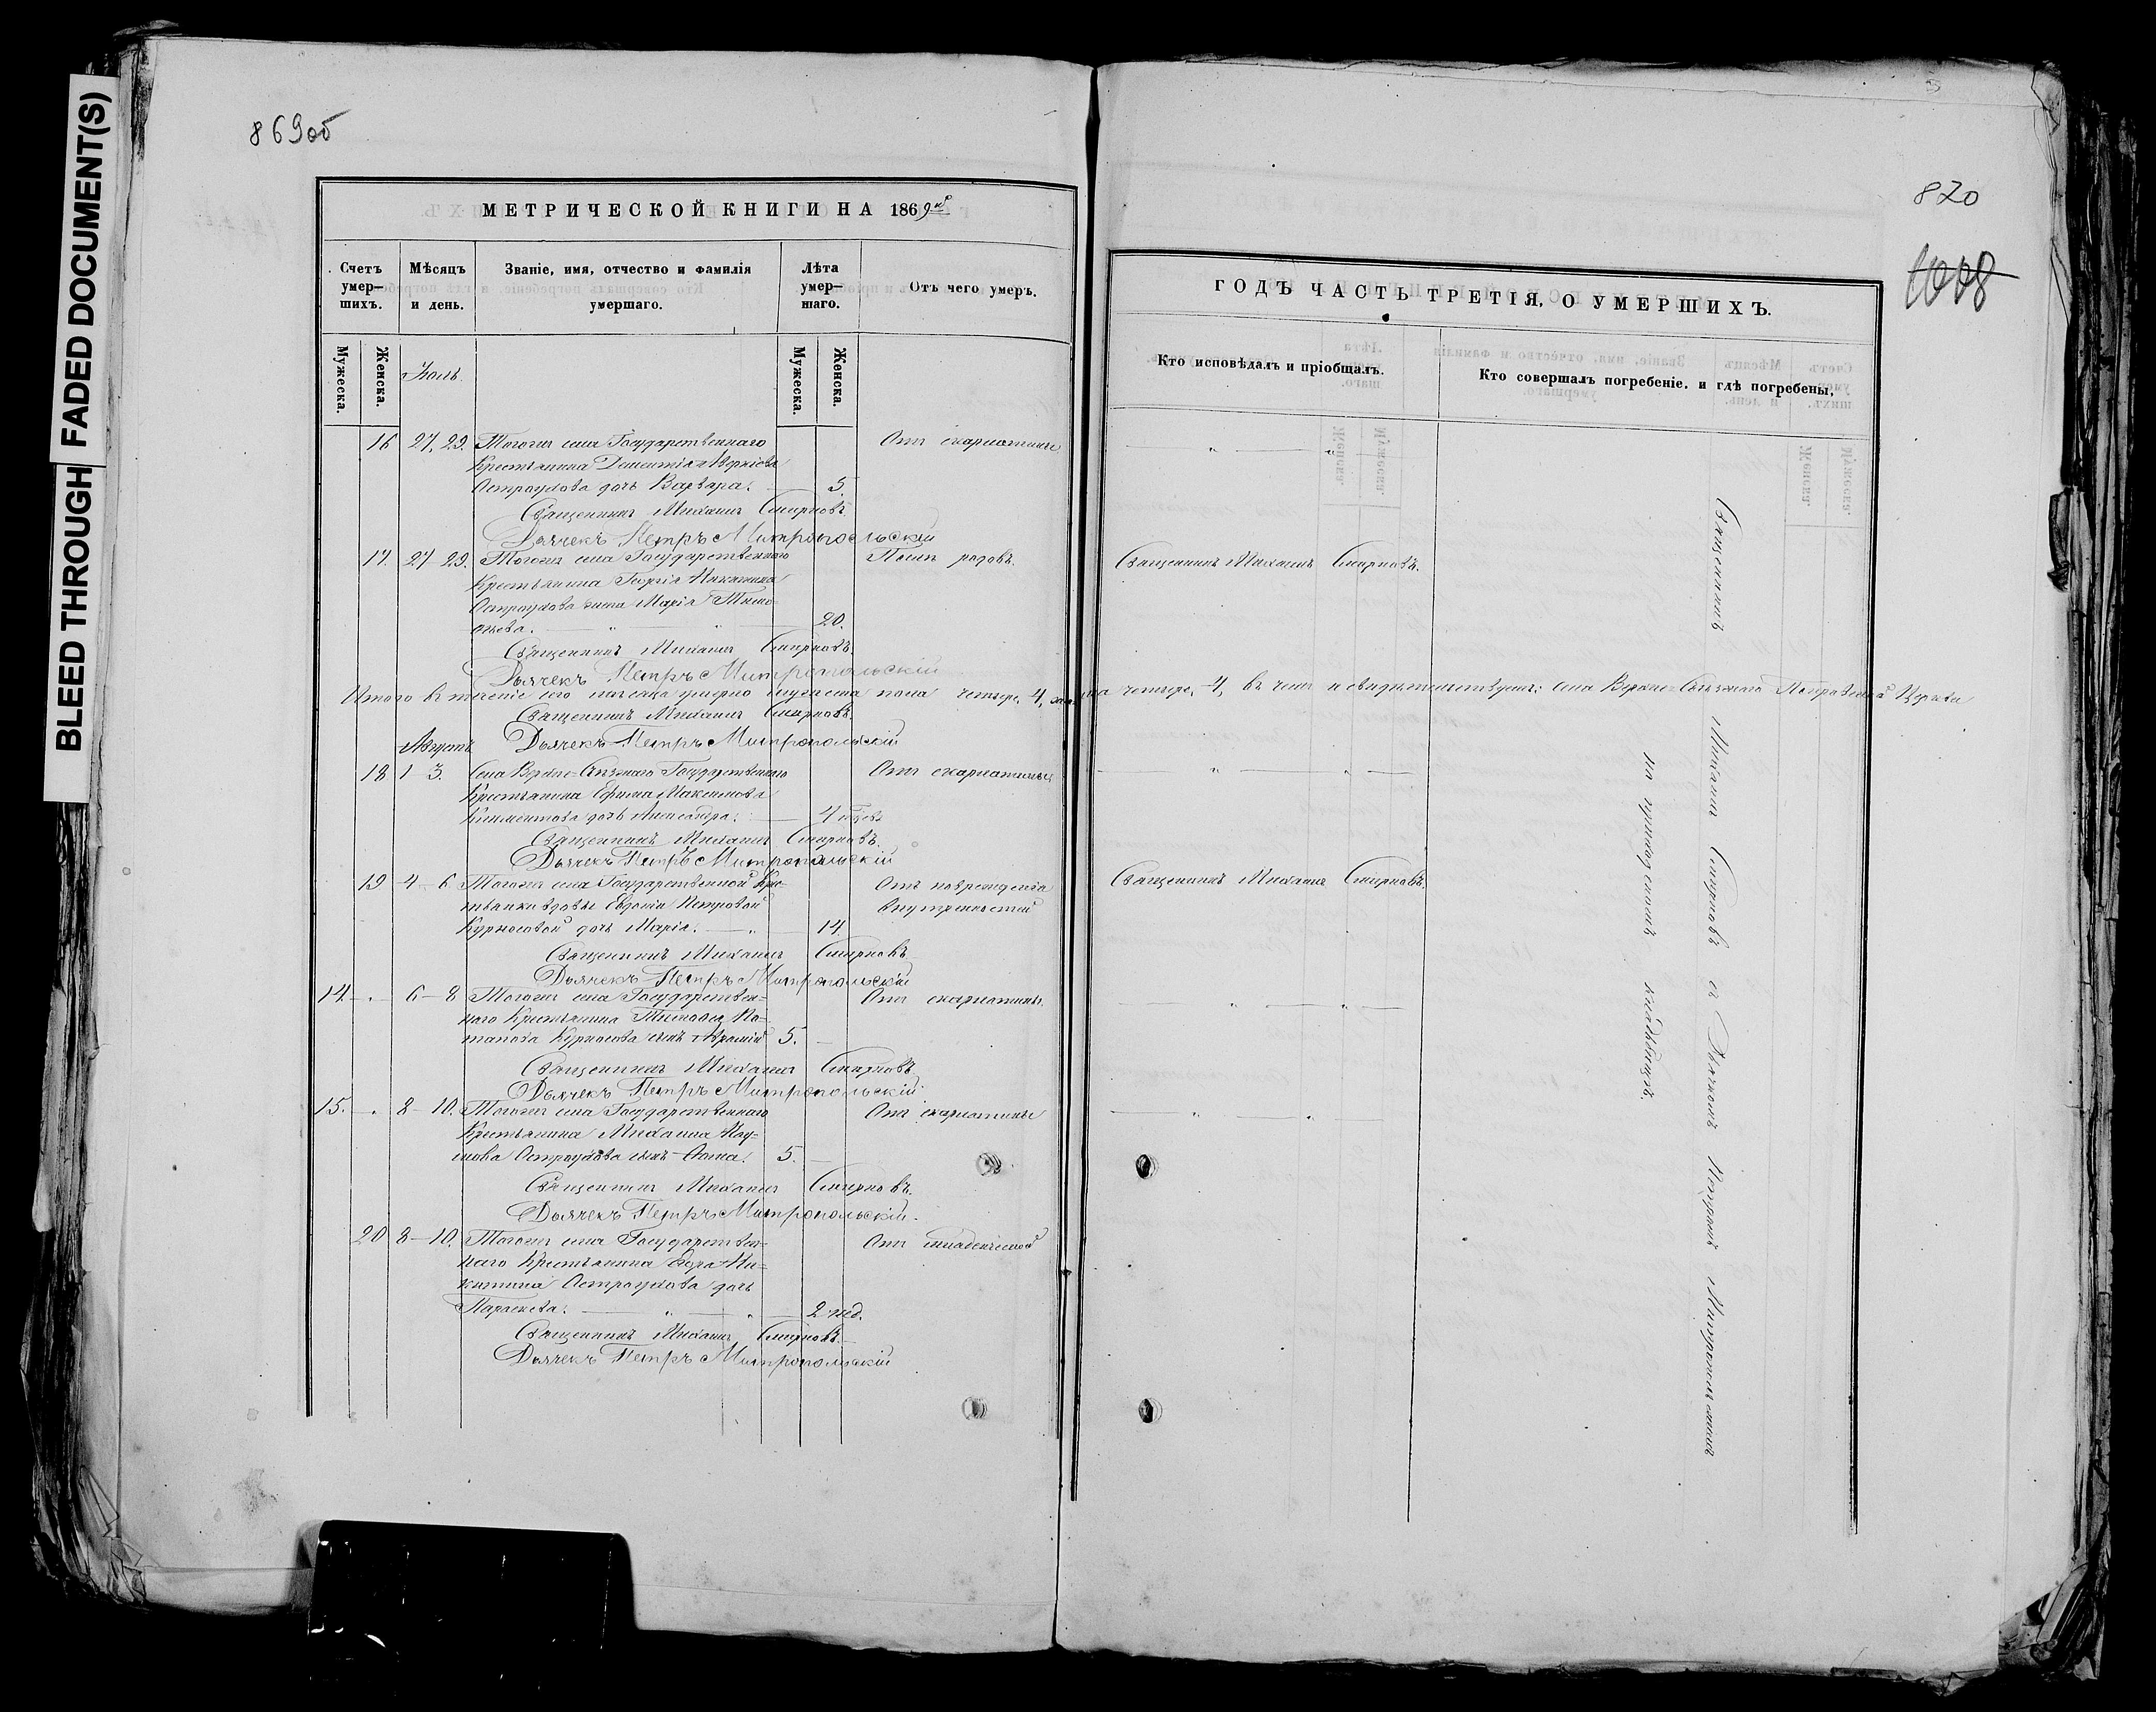 BLEED THROUGH FADED DOCUMENT(S)
869об
МЕТРИЧЕСКОЙ КНИГИ НА 1869й
Счетъ умер-шихъ.
Мѣсяцъ и день.
Званіе, имя, отчество и фамилія умершаго.
Лѣта умер-шаго.
Отъ чего умеръ.
Мужеска.
Женска.
Мужеска.
Женска.
Іюль.
16 27, 29. Тогожъ села Государственнаго Отъ скарлатины
Крестьянина Дементія
Остроухова дочь Варвара. 5.
Священникъ Михаилъ Смирновъ.
Дьячекъ Петръ Митропольскій
17. 27 29. Тогожъ села Государственнаго Послѣ родовъ.
Крестьянина Георгія Никитина
Остроухова жена Марія Тимо-
ѳеева. 20.
Священникъ Михаилъ Смирновъ.
Дьячекъ Петръ Митропольскій
Итого въ теченіе сего мѣсяца умерло мужеска пола четыре, 4,
Священникъ Михаилъ Смирновъ.
Августъ Дьячекъ Петръ Митропольскій
18 1-3. Села Государственнаго Отъ скарлатины
Крестьянина Ефима Максимова
Климентова дочь Александра. 4
Священникъ Михаилъ Смирновъ.
Дьячекъ Петръ Митропольскій
19 4-6. Тогожъ села Государственной Кре- Отъ поврежденія
стьянки вдовы Евдокіи Петровой внутренностей
Курносовой дочь Марія. 14.
Священникъ Михаилъ Смирновъ
Дьячекъ Петръ Митропольскій
14 6-8 Тогожъ села Государствен- Отъ скарлатины.
наго Крестьянина Тимоѳея По-
тапова Курносова сынъ 5.
Священникъ Михаилъ Смирновъ
Дьячекъ Петръ Митропольскій
15. 8-10. Тогожъ села Государственнаго Отъ скарлатины
Крестьянина Михаила Нау-
мова Остроухова сынъ Ѳома. 5.
Священникъ Михаилъ Смирновъ.
Дьячекъ Петръ Митропольскій.
20 8-10. Тогожъ села Государствен- Отъ младенческой
наго Крестьянина Егора Ни-
китина Остроухова дочь
Параскева. 2 нед.
Священникъ Михаилъ Смирновъ.
Дьячекъ Петръ Митропольскій
820
1008
ГОДЪ ЧАСТЬ ТРЕТІЯ, О УМЕРШИХЪ.
Кто исповѣдалъ и пріобщалъ.
Кто совершалъ погребеніе, и гдѣ погребены,
Священникъ Михаилъ Смирновъ.
четыре, 4, въ чемъ и свидѣтельствуемъ: села Покровской Церкви
Священникъ Михаилъ Смирновъ.
Священникъ Михаилъ Смирновъ съ Дьячкомъ Петромъ Митропольскимъ
на приходскомъ кладбищѣ.